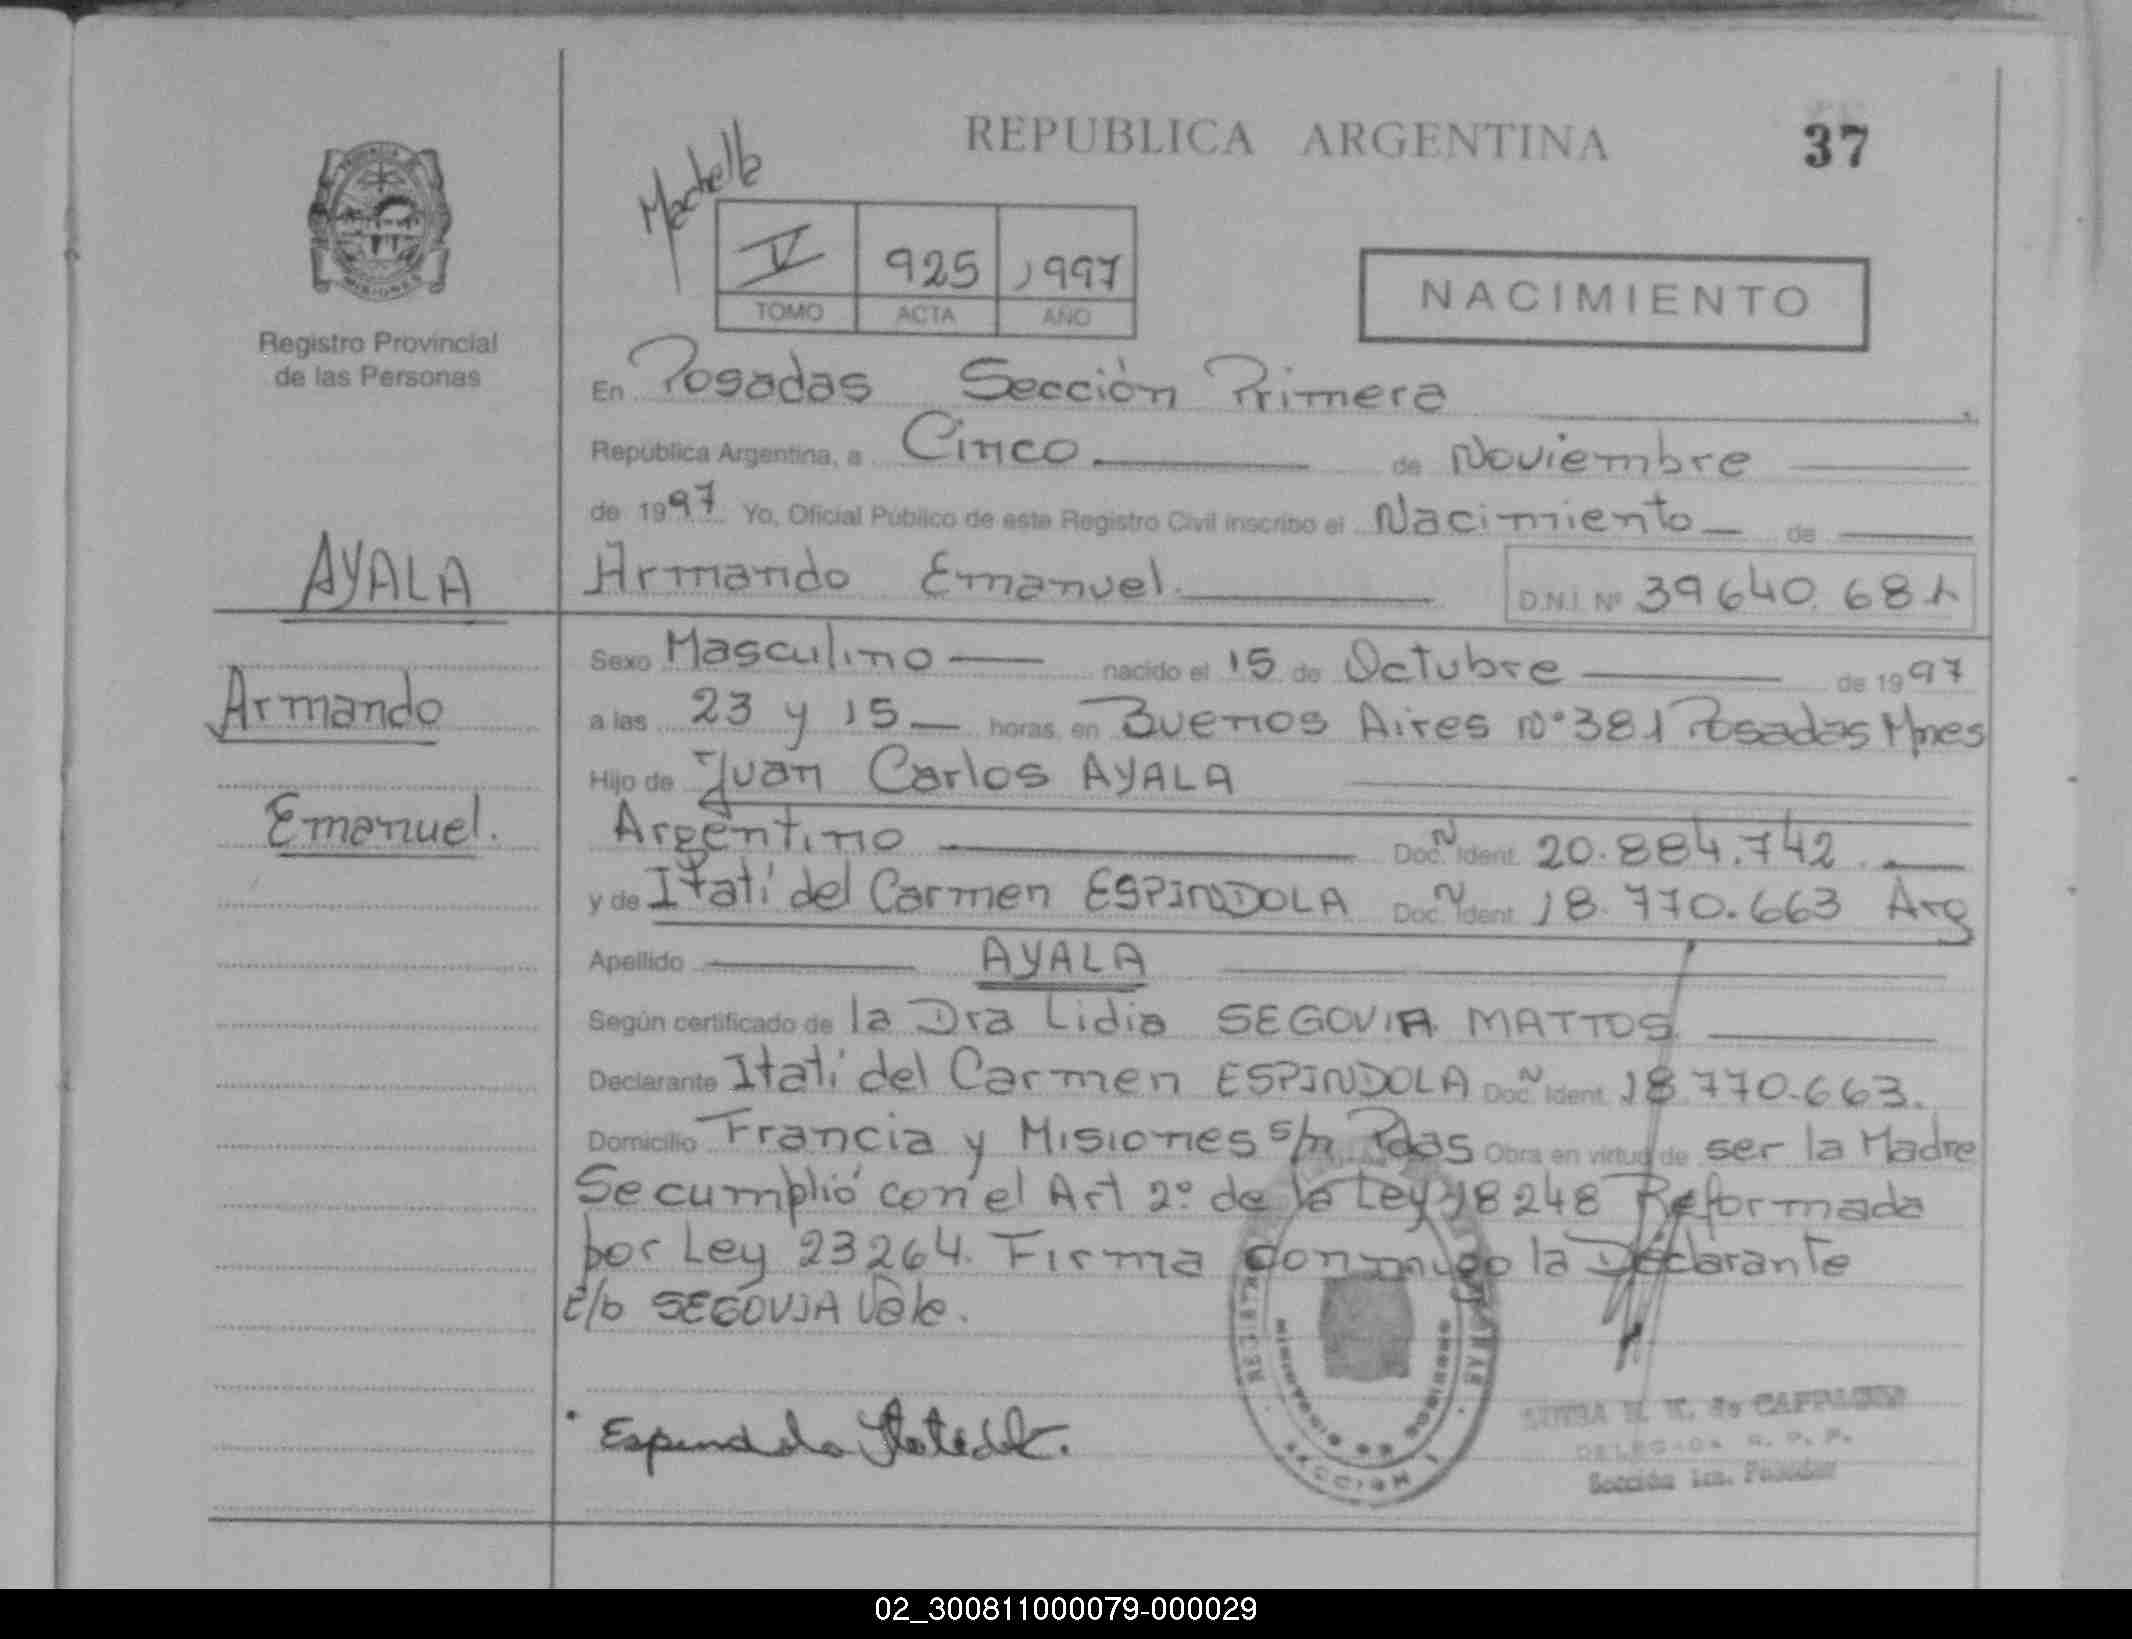 REPUBLICA ARGENTINA
37
V 925 1997
TOMO ACTA AÑO
NACIMIENTO
MISIONES
Registro Provincial
de las Personas
En Posadas Sección Primera
República Argentina, a Cinco de Noviembre
de 1997 Yo, Oficial Público de este Registro Civil inscribo el Nacimiento de
AYALA
Armando Emanuel.
D.N.I. Nº 39640.681
Armando
Emanuel.
Sexo Masculino nacido el 15 de Octubre de 1997
a las 23 y 15 horas, en Buenos Aires Nº 381 Posadas Mnes
Hijo de Juan Carlos AYALA
Argentino Doc. N Ident. 20.884.742.
y de Itatí del Carmen ESPINDOLA Doc. N Ident. 18.770.663 Arg
Apellido AYALA
Según certificado de la Dra Lidia SEGOVIA MATTOS
Declarante Itatí del Carmen ESPINDOLA Doc. N Ident. 18.770.663.
Domicilio Francia y Misiones s/n Pdas Obra en virtud de ser la Madre
Se cumplió con el Art 2º de la Ley 18248 Reformada
por Ley 23264. Firma conmigo la Declarante
E/b SEGOVIA Vale.
SECCION 1
DELEGADA R. P. P.
Sección 1ra. Posadas
02_300811000079-000029